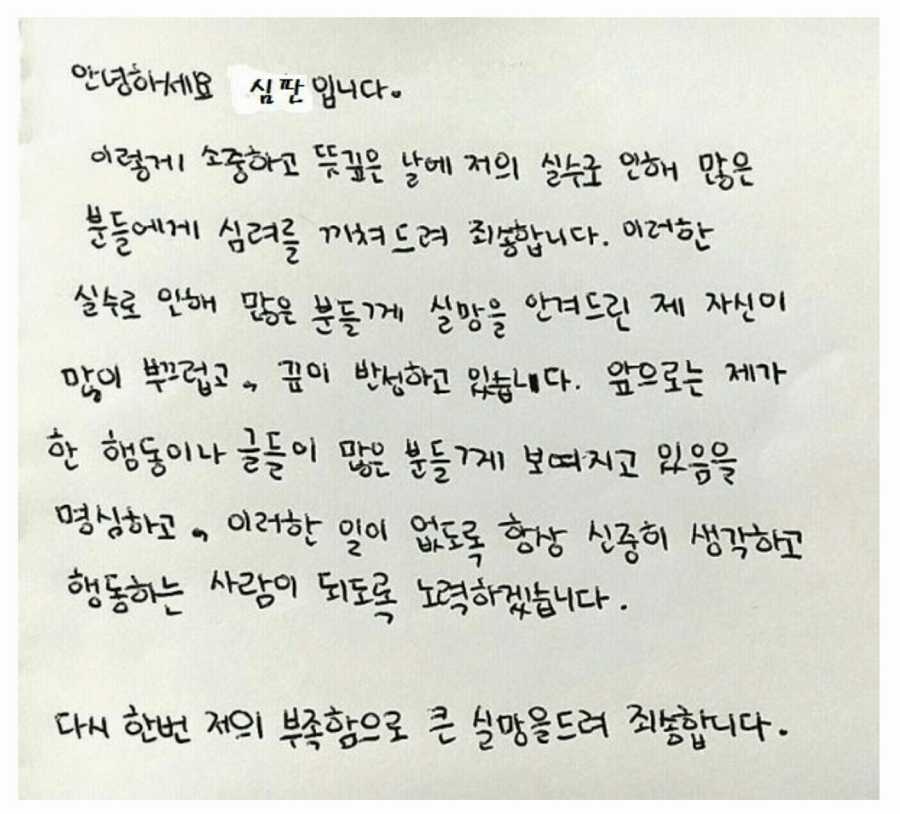 안녕하세요 심판입니다.
이렇게 소중하고 뜻깊은 날에 저의 실수로 인해 많은
분들에게 심려를 끼쳐드려 죄송합니다. 이러한
실수로 인해 많은 분들께 실망을 안겨드린 제 자신이
많이 부끄럽고, 깊이 반성하고 있습니다. 앞으로는 제가
한 행동이나 글들이 많은 분들께 보여지고 있음을
명심하고, 이러한 일이 없도록 항상 신중히 생각하고
행동하는 사람이 되도록 노력하겠습니다.
다시 한번 저의 부족함으로 큰 실망을드려 죄송합니다.